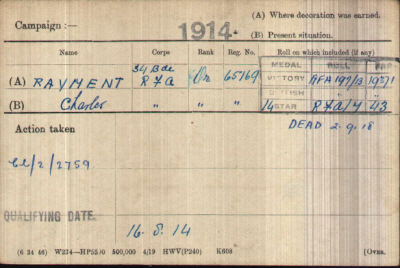 (A) Where decoration was earned.
Campaign:— 1914.
(B) Present situation.
Name Corps Rank Reg. No. Roll on which included (if any)
MEDAL ROLL PAGE
34 Bde
(A) RAYMENT R F A Dr 65169 VICTORY RFA 197/B 19571
(B) Charles " " " BRITISH " "
14 STAR RFA/4 43
Action taken DEAD 2.9.18
CL/2/2759.
QUALIFYING DATE.
16.8.14
(6 34 46) W234—HP5590 500,000 4/19 HWV(P240) K608 [Over.